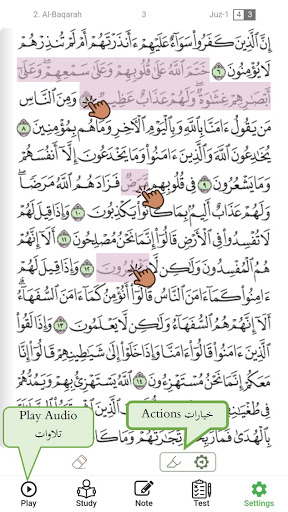 2. Al-Baqarah 3 Juz-1 4 3
إِنَّ ٱلَّذِينَ كَفَرُوا۟ سَوَآءٌ عَلَيْهِمْ ءَأَنذَرْتَهُمْ أَمْ لَمْ تُنذِرْهُمْ
لَا يُؤْمِنُونَ ٦ خَتَمَ ٱللَّهُ عَلَىٰ قُلُوبِهِمْ وَعَلَىٰ سَمْعِهِمْ وَعَلَىٰٓ
أَبْصَٰرِهِمْ غِشَٰوَةٌ وَلَهُمْ عَذَابٌ عَظِيمٌ وَمِنَ ٱلنَّاسِ
مَن يَقُولُ ءَامَنَّا بِٱللَّهِ وَبِٱلْيَوْمِ ٱلْءَاخِرِ وَمَا هُم بِمُؤْمِنِينَ ٨
يُخَٰدِعُونَ ٱللَّهَ وَٱلَّذِينَ ءَامَنُوا۟ وَمَا يَخْدَعُونَ إِلَّآ أَنفُسَهُمْ
وَمَا يَشْعُرُونَ ٩ فِى قُلُوبِهِم مَّرَضٌ فَزَادَهُمُ ٱللَّهُ مَرَضًا
وَلَهُمْ عَذَابٌ أَلِيمٌۢ بِمَا كَانُوا۟ يَكْذِبُونَ ١٠ وَإِذَا قِيلَ لَهُمْ
لَا تُفْسِدُوا۟ فِى ٱلْأَرْضِ قَالُوٓا۟ إِنَّمَا نَحْنُ مُصْلِحُونَ ١١ أَلَآ إِنَّهُمْ
هُمُ ٱلْمُفْسِدُونَ وَلَٰكِن لَّا يَشْعُرُونَ ١٢ وَإِذَا قِيلَ لَهُمْ
ءَامِنُوا۟ كَمَآ ءَامَنَ ٱلنَّاسُ قَالُوٓا۟ أَنُؤْمِنُ كَمَآ ءَامَنَ ٱلسُّفَهَآءُ
أَلَآ إِنَّهُمْ هُمُ ٱلسُّفَهَآءُ وَلَٰكِن لَّا يَعْلَمُونَ ١٣ وَإِذَا لَقُوا۟
ٱلَّذِينَ ءَامَنُوا۟ قَالُوٓا۟ ءَامَنَّا وَإِذَا خَلَوْا۟ إِلَىٰ شَيَٰطِينِهِمْ قَالُوٓا۟ إِنَّا
مَعَكُمْ إِنَّمَا نَحْنُ مُسْتَهْزِءُونَ ١٤ ٱللَّهُ يَسْتَهْزِئُ بِهِمْ وَيَمُدُّهُمْ
فِى طُغْيَٰنِهِمْ
بِٱلْهُدَىٰ فَمَا رَبِحَت تِّجَٰرَتُهُمْ وَمَا
Play Audio
تلاوات
Actions خيارات
Play Study Note Test Settings